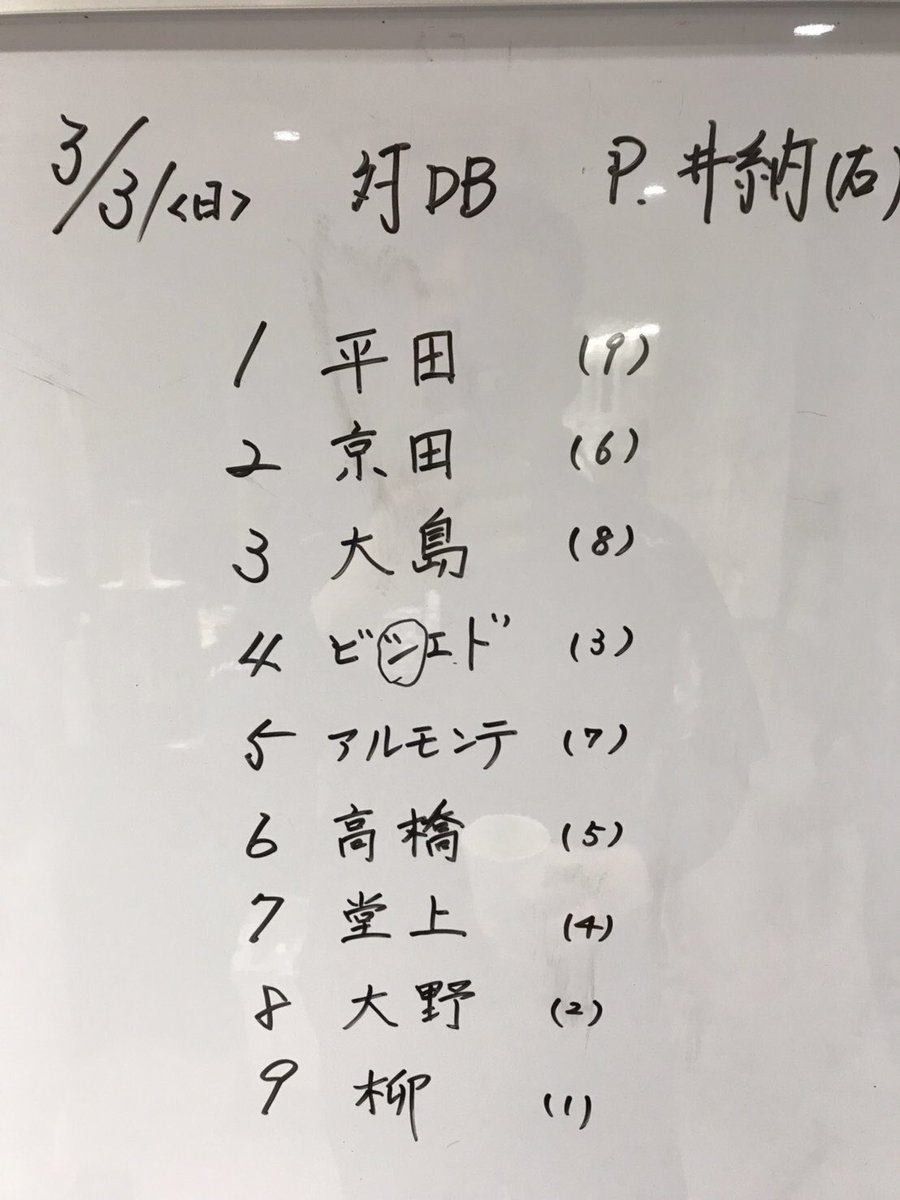 3/31<日> 対DB P.井納(右)
1 平田 (9)
2 京田 (6)
3 大島 (8)
4 ビシエド (3)
5 アルモンテ (7)
6 高橋 (5)
7 堂上 (4)
8 大野 (2)
9 柳 (1)